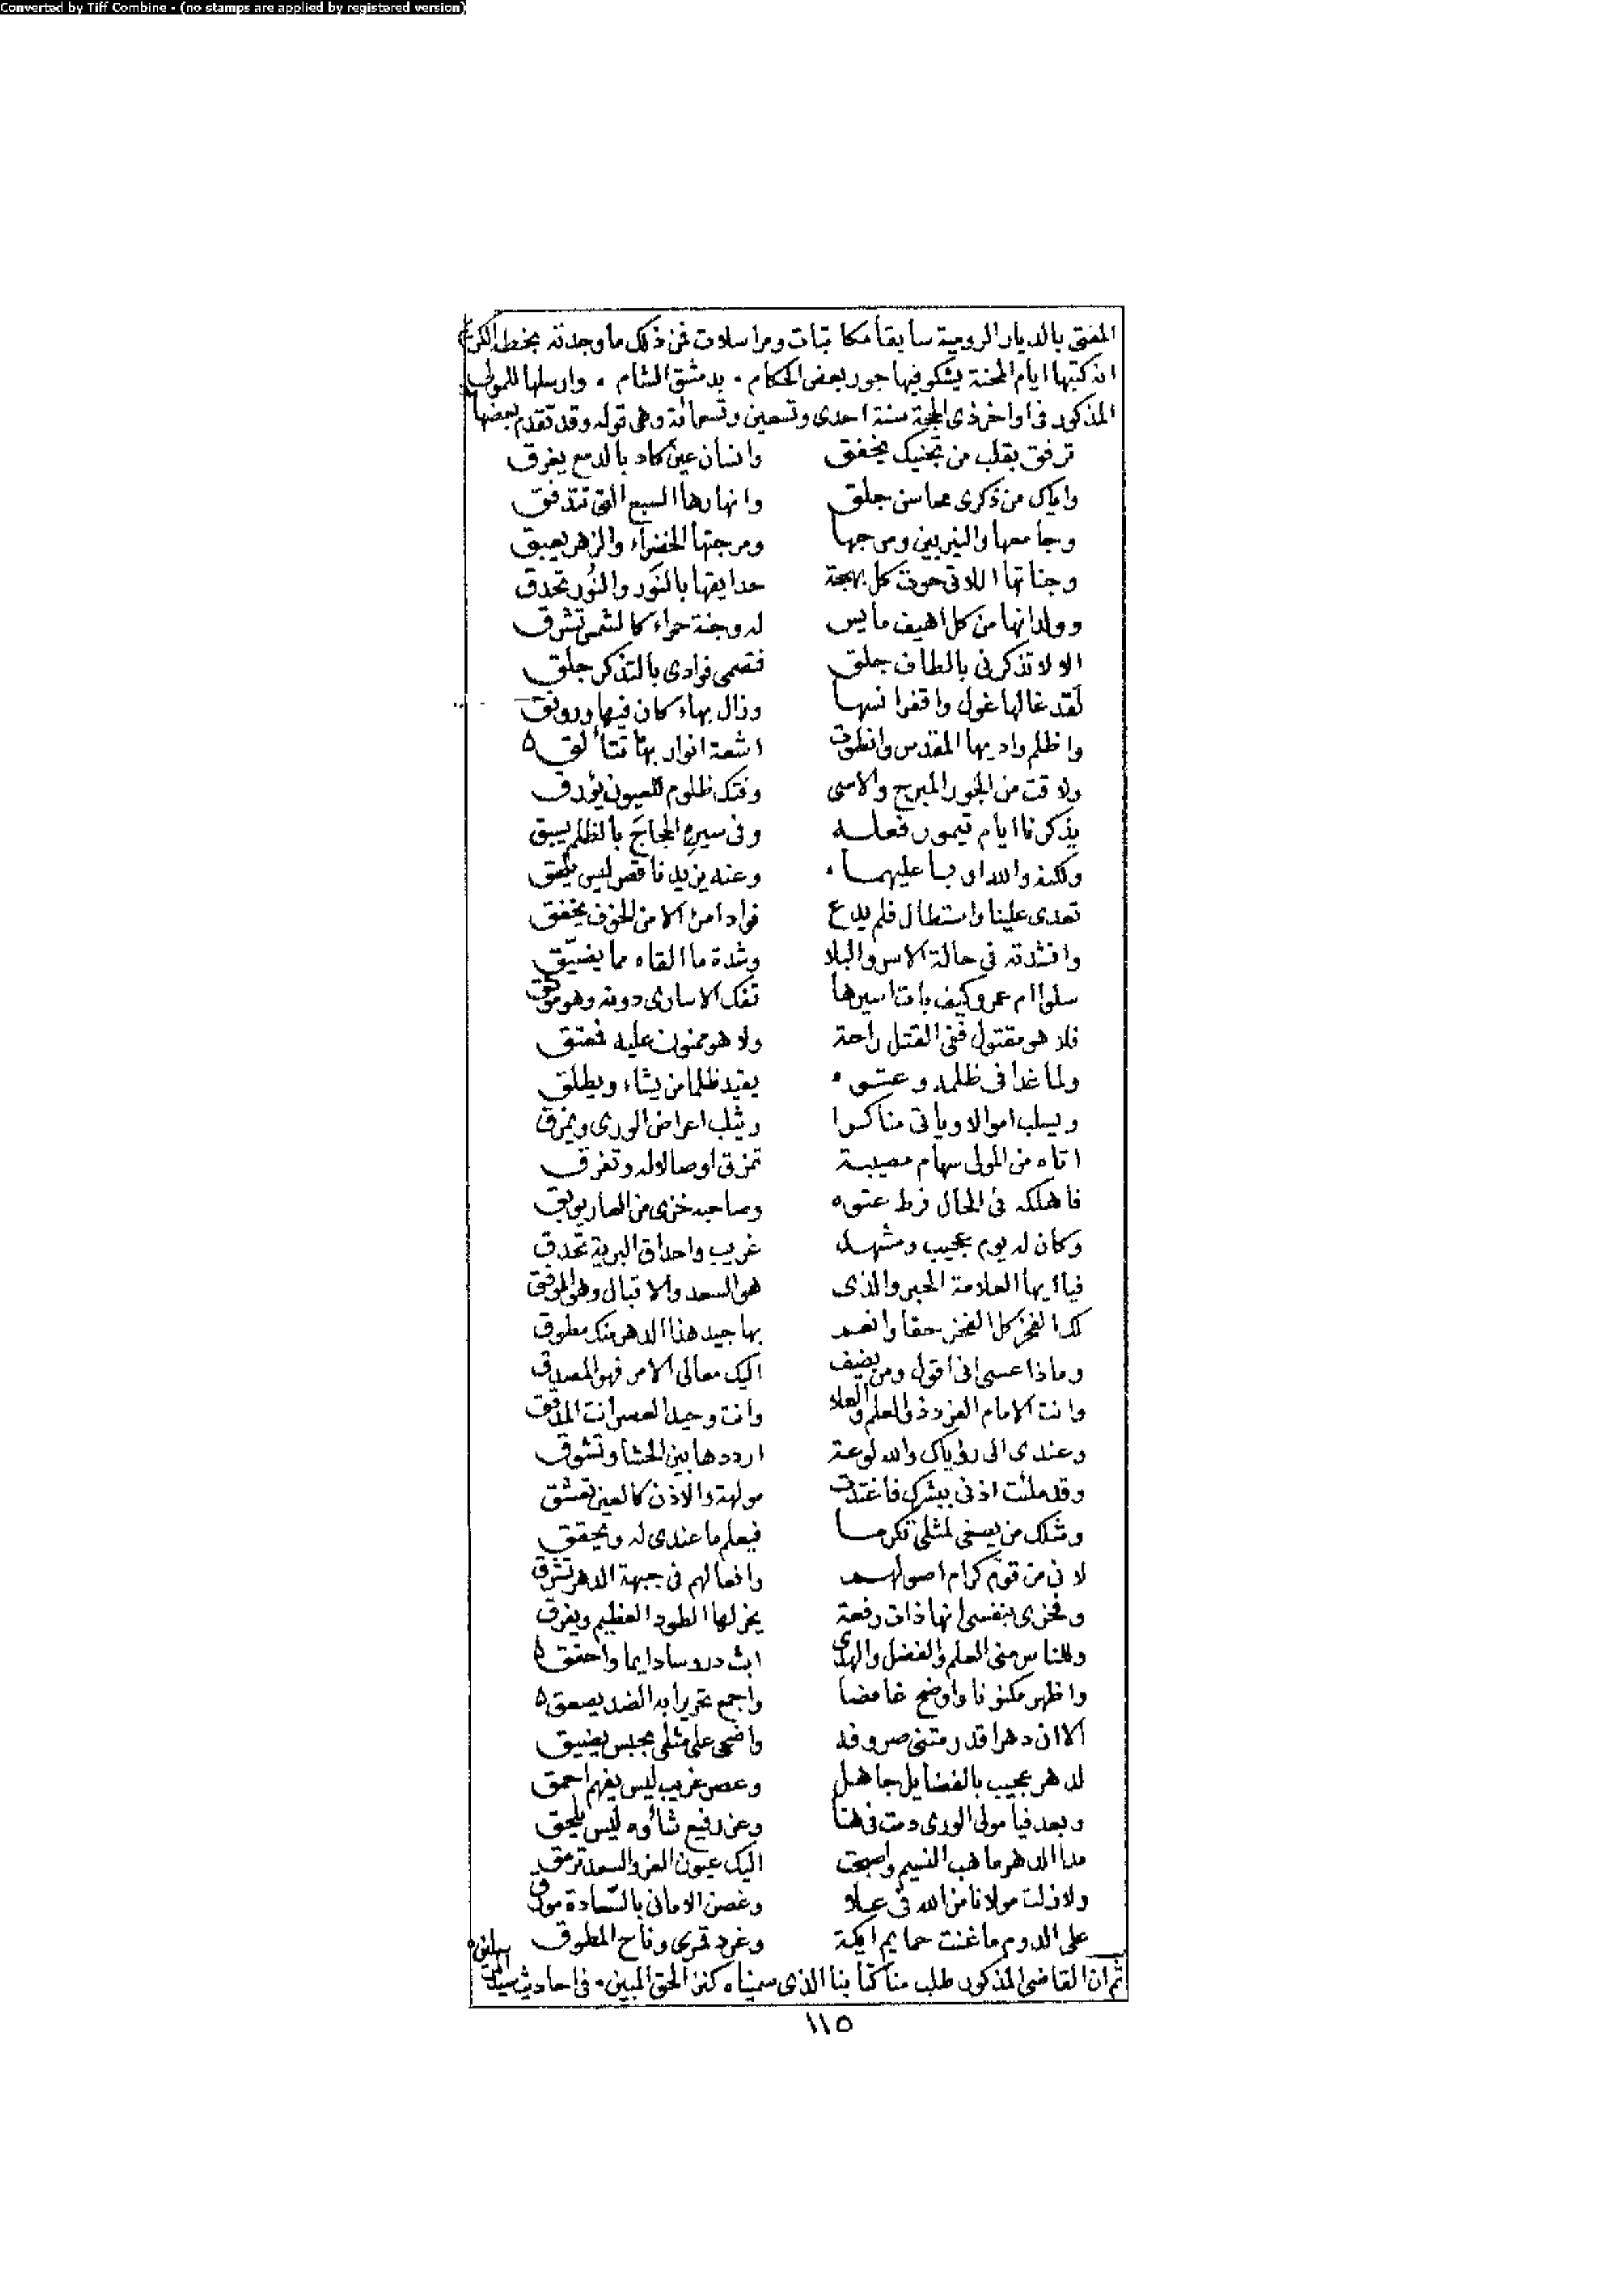 Converted by Tiff Combine - (no stamps are applied by registered version)
المفتى بالديار الرومية سابقا مكاتبات ومراسلات فمن ذلك ما وجدته بخطه الكريم
انه كتبها ايام المحنة يشكو فيها جور بعض الحكام . بدمشق الشام . وارسلها للمولى
المذكور فى اواخر ذى الحجة سنة احدى وتسعين وتسعمائة وهى قوله وقد تقدم بعضها
ترفق بقلب من تجنيك يخفق وانسان عين كاد بالدمع يغرق
واياك من ذكرى محاسن جلق وانهارها السبع التى تتدفق
وجامعها والنيربين ومرجها ومرجتها الخضراء والزهر يعبق
وجناتها اللاتى حوت كل بهجة حدايقها بالنَور والنُور تحدق
وولدانها من كل اهيف مايس له وجنة حمراء كالشمس تشرق
الا لا تذكرنى بالطاف جلق فقصمى فوادى بالتذكر جلق
لقد غالها غول واقفر انسها وزال بهاء كان فيها ورونق
واظلم واديها المقدس وانطوت اشعة انوار بها تتألق
ولاقت من الجور المبرح والاسى وفتك ظلوم للعيون يؤرق
يذكرنا ايام تيمور فعله وفى سيره الحجاج بالظلم يسبق
ولكنه والله اربا عليهما . وعنه يزيد ناقص ليس يلحق
تعدى علينا واستطال فلم يدع فواد امرئ الا من الخوف يخفق
وانشدته فى حالة الاسر والبلا وشدة ما القاه مما يضيّق
سلوا ام عمرو كيف بات اسيرها تفك الاسارى دونه وهو موثق
فلا هو مقتول ففى القتل راحة ولا هو ممنون عليه فمعتق
ولما غدا فى ظلمه وعتوه يقيد ظلما من يشاء ويطلق
ويسلب اموالا وياتى مناكرا ويثلب اعراض الورى ويمزق
اتاه من المولى سهام مصيبة تمزق اوصالا له وتفرق
فاهلكه فى الحال فرط عتوه وصاحبه خزى من العار يوبق
وكان له يوم عجيب ومشهد غريب واحداق البرية تحدق
فيا ايها العلامة الحبر والذى هو السعد والاقبال وهو الموفق
لك الفخر كل الفخر حقا وانعم بها جيد هذا الدهر منك مطوق
وماذا عسى انى اقول ومن يضيف اليك معالى الامر فهو المصدق
وانت الامام الفرد ذو العلم والعلا وانت وحيد العصر انت المدقق
وعندى الى رؤياك والله لوعة ارددها بين الحشا وتشوق
وقد ملئت اذنى ببشرك فاغتدت مولهة والاذن كالعين تعشق
ومثلك من يصغى لمثلى تكرما فيعلم ما عندى له ويحقق
لانى من قوم كرام اصولهم وافعالهم فى جبهة الدهر تشرق
وفخرى بنفسى انها ذات رفعة يخر لها الطود العظيم ويفرق
وللناس منى العلم والفضل والهدى ابث دروسا دايما واحقق
واظهر مكنونا واوضح غامضا واجمع تحريرا به الضد يصعق
الا ان دهرا قد رمتنى صروفه واضحى على مثلى بحبس يضيق
لدهر عجيب بالفضايل جاهل وعصر غريب ليس يفهم احمق
وبعد فيا مولى الورى دمت فى هنا وعن رفيع شأوه ليس يلحق
مدا الدهر ما هب النسيم واصبحت اليك عيون العز والسعد ترمق
ولا زلت مولانا من الله فى علا وغصن الامانى بالسعادة مورق
على الدوم ما غنت حمايم ايكة وغرد قمرى وناح المطوق
ثم ان القاضى المذكور طلب منا كتابنا الذى سميناه كنز الحق المبين . فى احاديث سيد المرسلين
١١٥